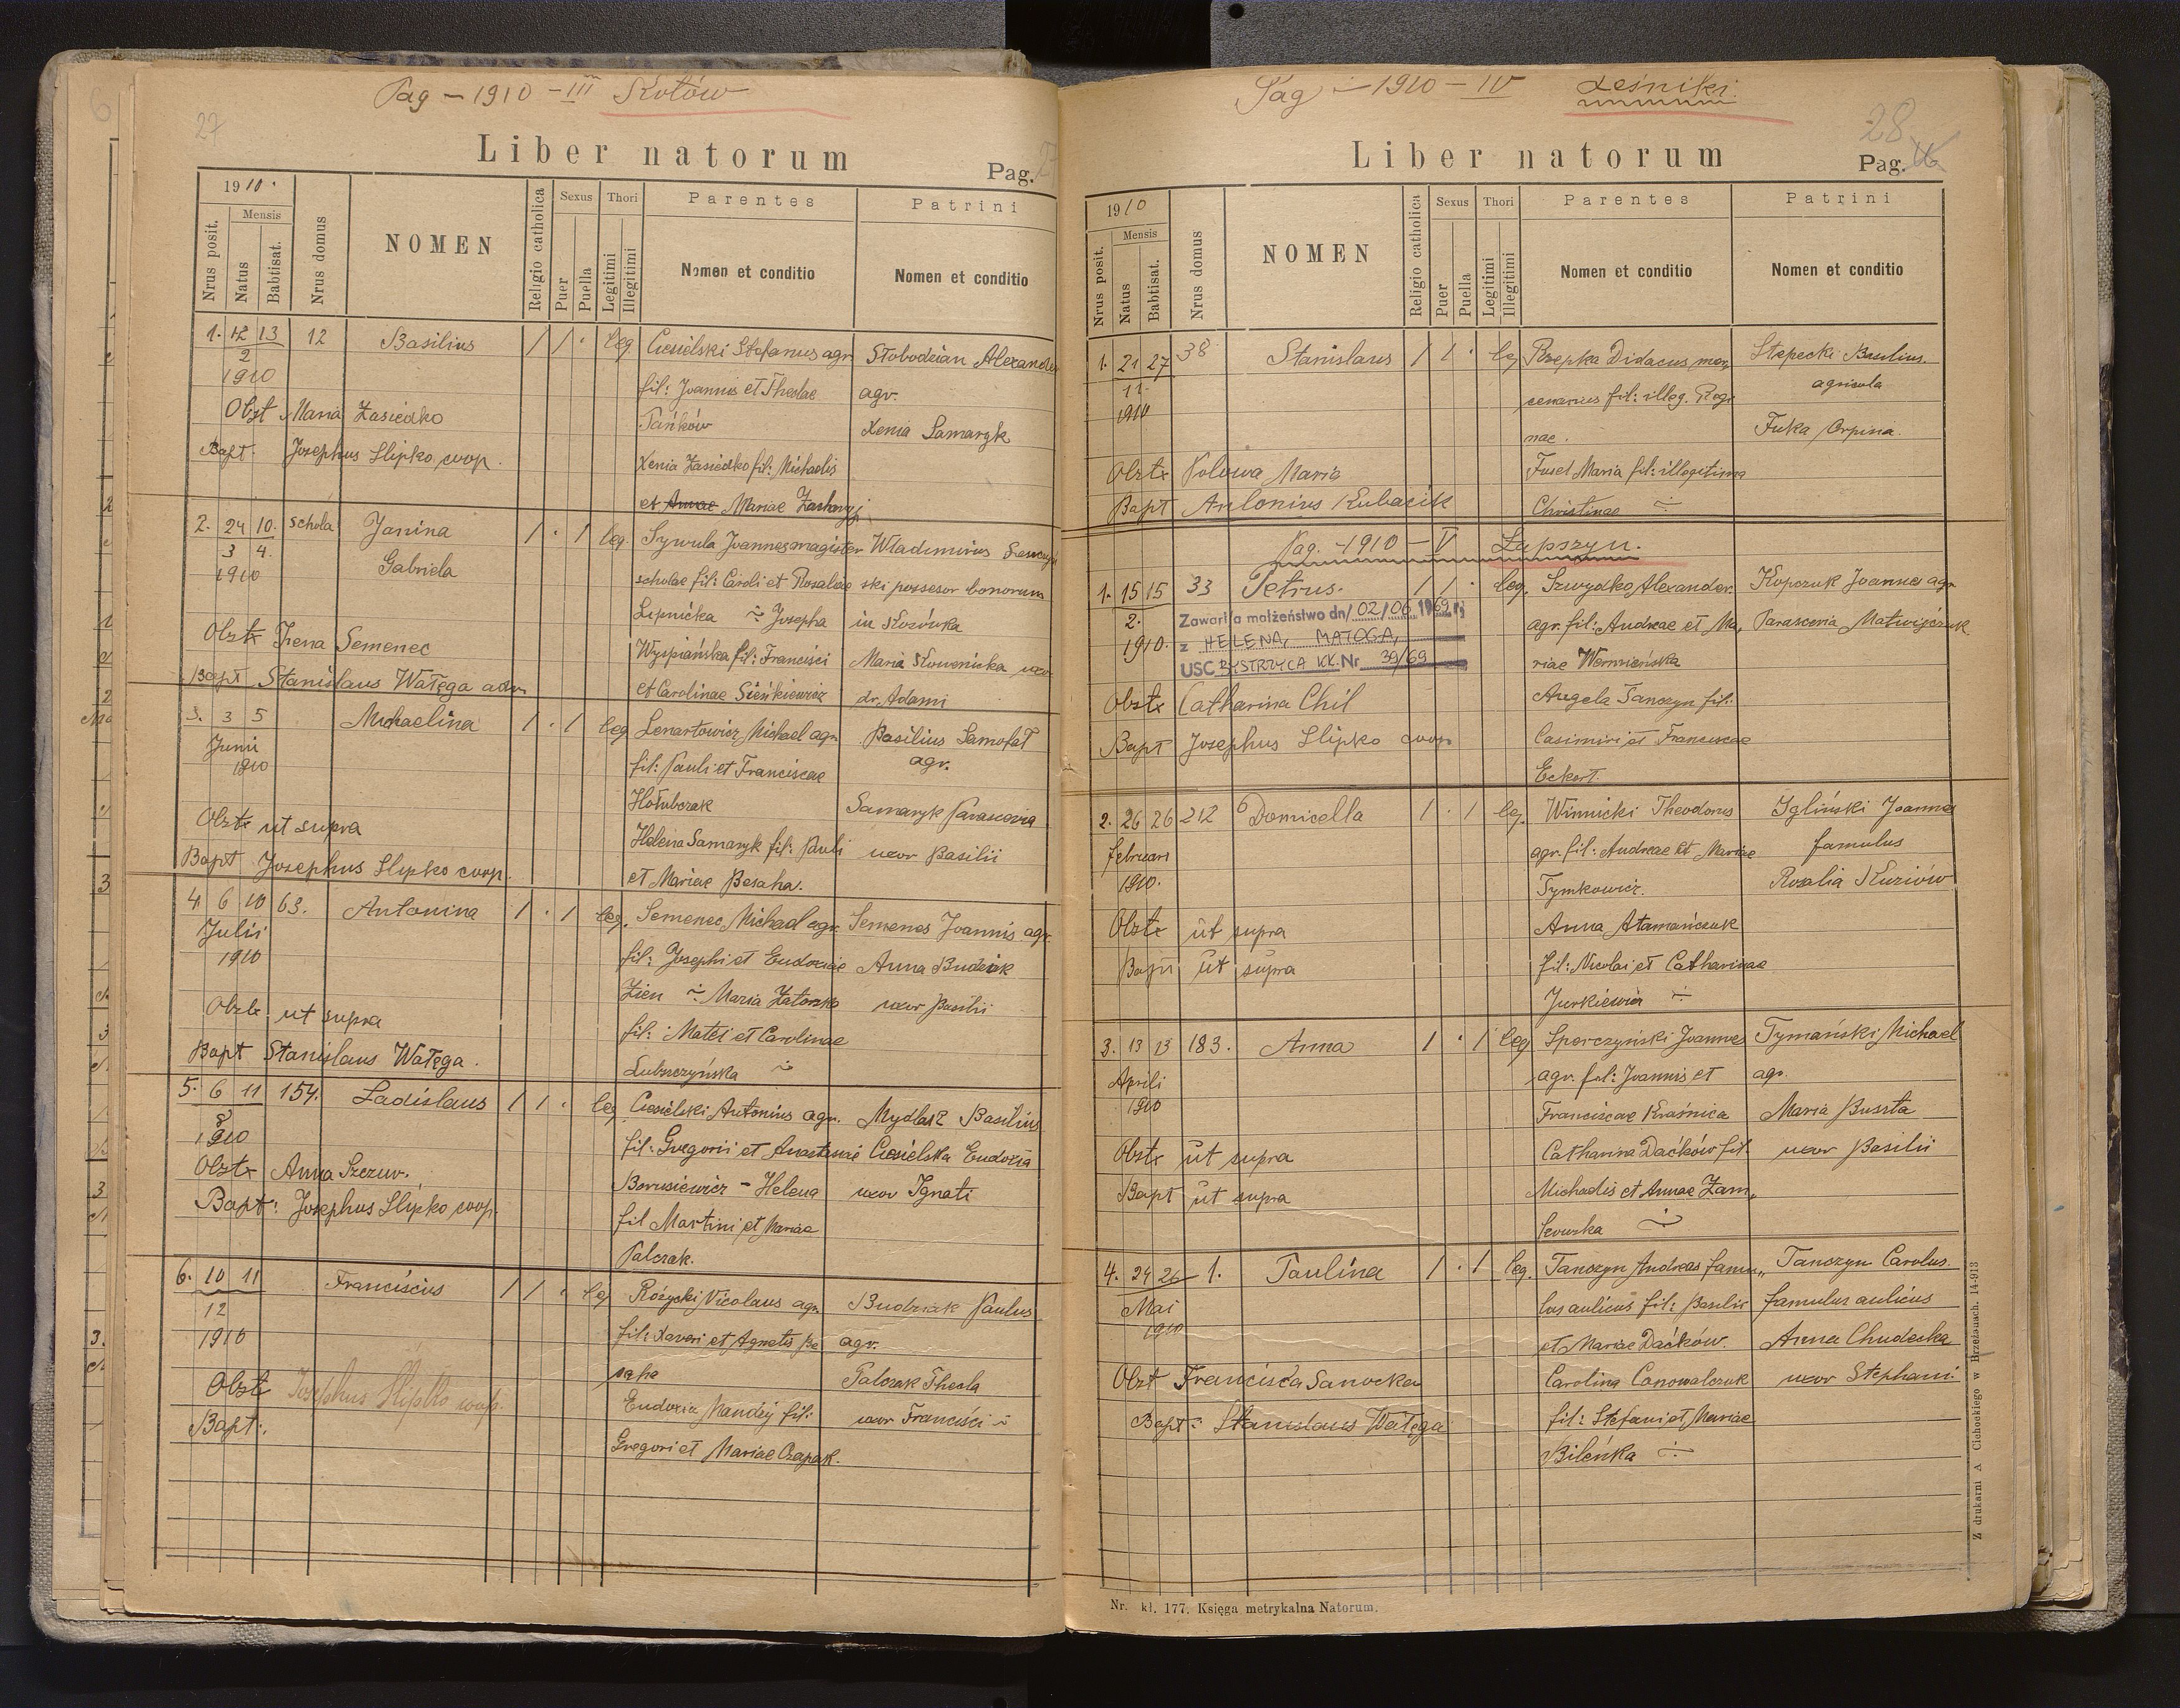 Pag — 1910 — III Kotów
27
Liber natorum
Pag.
1910.
Nrus posit.
Mensis
Natus
Babtisat.
Nrus domus
NOMEN
Religio catholica
Sexus
Puer
Puella
Thori
Legitimi
Illegitimi
Parentes
Nomen et conditio
Patrini
Nomen et conditio
1. 12 13 12 Basilius 1 1 · leg Ciesielski Stefanus agr. Słobodzian Alexander
2 1910 fil: Joannis et Theclae agr.
Obst Maria Zasiedko Pańków Xenia Samaryk
Bapt. Josephus Slipko coop. Xenia Zasiedko fil: Michaelis
et Annae Mariae
2. 24 10. schola Janina 1 · 1 leg Sywula Joannes magister Wladimirus
3 4. 1910 Gabriela scholae fil: Caroli et Rosaliae ski possesor bonorum
Lipnicka Josepha in Kozówka
Obste Irena Semenec Wyspiańska fil: Francisci Maria
Bapt Stanislaus Wałęga adm. et Carolinae Sieńkiewicz dr. Adami
3. 3 5 Michaelina 1 · 1 leg Lenartowicz Michael agr. Basilius Samofał
Juni 1910 fil: Pauli et Franciscae agr.
Hołubczak Samaryk Parascevia
Obste ut supra Helena Samaryk fil: Pauli uxor Basilii
Bapt Josephus Slipko coop. et Mariae Besaha.
4 6 10 63. Antonina 1 · 1 leg. Semenec Michael agr. Semenec Joannis agr.
Julii 1910 fil: Josephi et Eudoxiae Anna Budziak
Zień Maria Zatorska uxor Basilii
Obste ut supra fil: Matei et Carolinae
Bapt Stanislaus Wałęga. Lubszczyńska
5. 6 11 154. Ladislaus 1 1 · leg Ciesielski Antonius agr. Mydlarz Basilius
8 1910 fil: Gregorii et Anastasiae Ciesielska Eudoxia
Obste Anna Szczur. Borusiewicz – Helena uxor Ignati
Bapt: Josephus Slipko coop. fil Martini et Mariae
Palczak.
6. 10 11 Franciscus 1 1 · leg Różycki Nicolaus agr. Budziak Paulus
12 1910 fil: Xaveri et Agnetis Be agr.
Obste Josephus Slipko coop. saha Palczak Thecla
Bapt: Eudoxia Mandzij fil: uxor Francisci
Gregori et Mariae Czapak.
Pag — 1910 — IV Leśniki
28
Liber natorum
Pag.
1910
Nrus posit.
Mensis
Natus
Babtisat.
Nrus domus
NOMEN
Religio catholica
Sexus
Puer
Puella
Thori
Legitimi
Illegitimi
Parentes
Nomen et conditio
Patrini
Nomen et conditio
1. 21 27 38 Stanislaus 1 1 · leg Rzepka Didacus mer, Stepecki Basilius
11. 1910 cenarius fil: illeg. Regi agricola
nae. Fuka Orpina.
Obste Połowa Maria Fusel Maria fil: illegitima
Bapt Antonius Kubacik Christinae
Pag. — 1910 — V Łapszyn.
1. 15 15 33 Petrus. 1 1 · leg. Szwydko Alexander. Kopczuk Joannes agr.
2. 1910. agr. fil: Andreae et Ma, Parascevia Matwijczuk
Zawarł/a małżeństwo dn/ 02/06 1969 r.
z HELENA, MATOGA,
USC BYSTRZYCA KŁ. Nr 39/69
riae Wormińska
Obste Catharina Chil Angela Tanczyn fil:
Bapt Josephus Slipko coop Casimiri et Franciscae
Eckert.
2. 26 26 212 Domicella 1 · 1 leg. Winnicki Theodorus Igliński Joannes
februari 1910. agr. fil: Andreae et Mariae famulus
Tymkowicz. Rosalia Kuziów
Obste ut supra Anna Atamańczuk
Bapt ut supra fil: Nicolai et Catharinae
Jurkiewicz
3. 13 13 183. Anna 1 · 1 leg Sporczyński Joannes Tymański Michael
Aprili 1910 agr. fil: Joannis et agr.
Franciscae Kraśnica Maria Buszta
Obste ut supra Catharina Daćków fil. uxor Basilii
Bapt ut supra Michaelis et Annae Zam,
kowska
4. 24 26 1. Paulina 1 · 1 leg. Tanczyn Andreas famu, Tanczyn Carolus
Mai 1910 lus aulicus fil: Basilii famulus aulicus
et Mariae Daćków. Anna Chudecka
Obst Francisca Sanocka Carolina Conowalczuk uxor Stephani
Bapt: Stanislaus Wałęga fil: Stefani et Mariae
Bileńka
Nr. kł. 177. Księga metrykalna Natorum.
Z drukarni A Cichockiego w Brzeżanach. 14-913